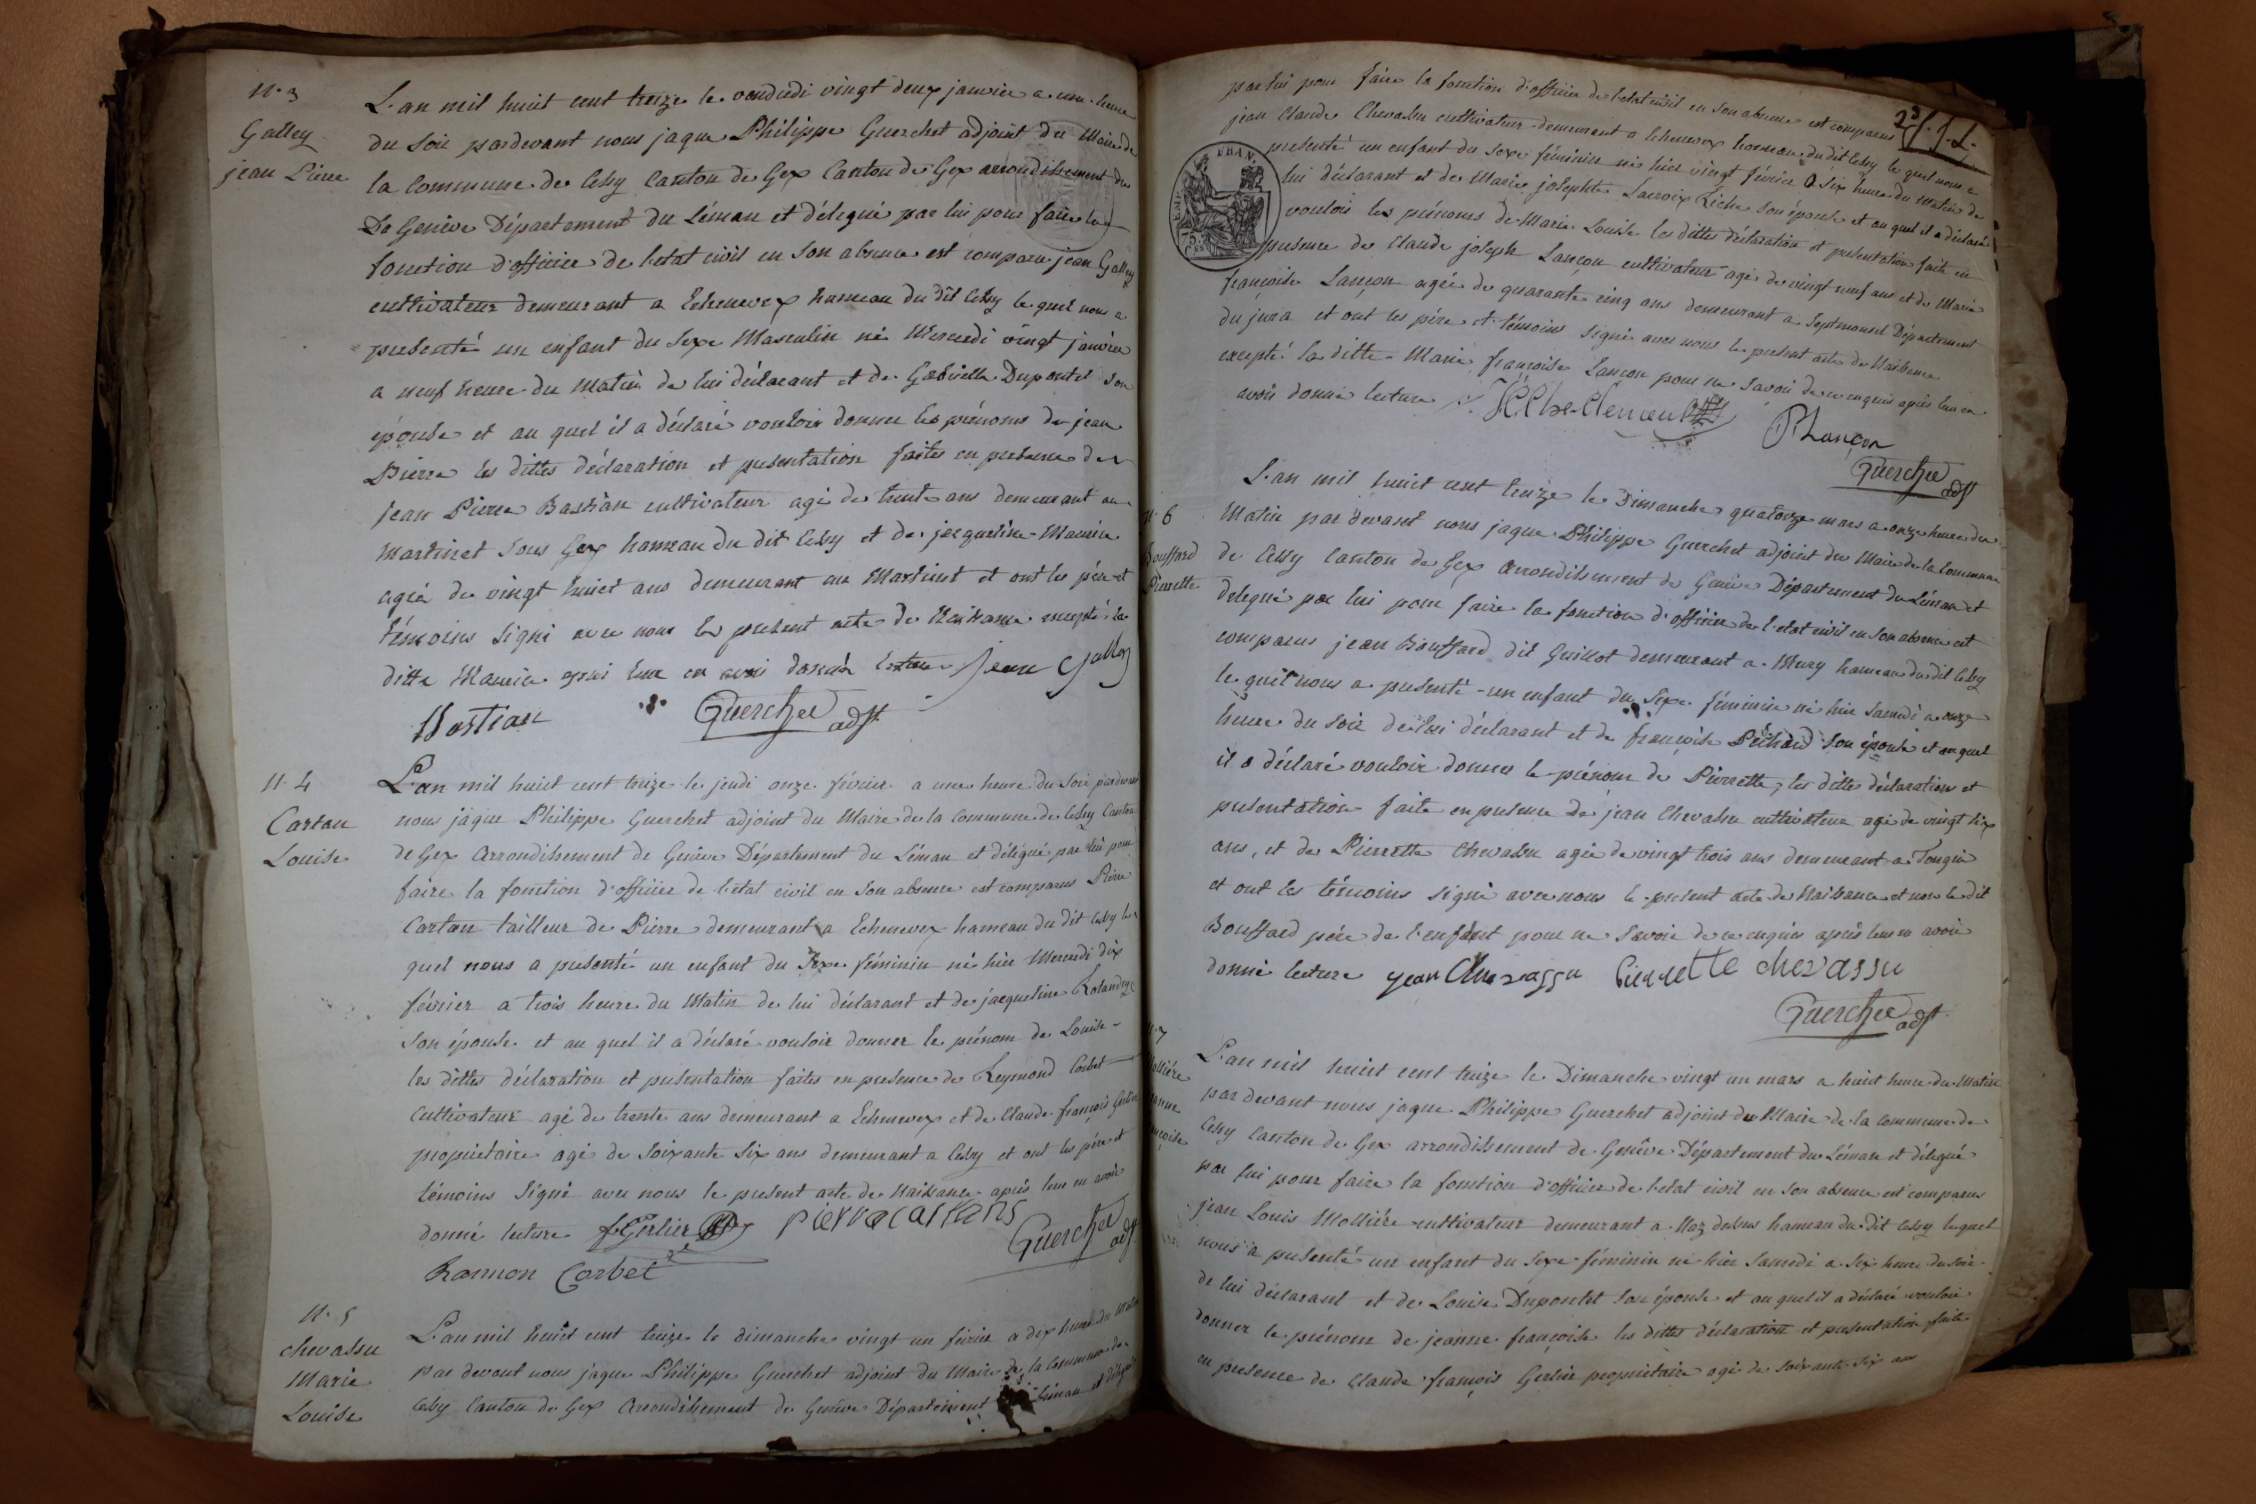 N. 3
Galley
jean Pierre
L'an mil huit cent treize le vendredi vingt deux janvier a une heure
du soir pardevant nous jaque Philippe Guerchet adjoint du Maire de
la Commune de Cessy Canton de Gex Canton de Gex arrondissement de
De Genève Département du Léman et délegué par lui pour faire la
fonction d'officier de l'etat civil en son absence est comparu jean Galley
cultivateur demeurant a Echenevex hameau du dit Cessy le quel nous a
presenté un enfant du sexe Masculin né Mercredi vingt janvier
a neuf heure du Matin de lui déclarant et de Gabrielle Dupontet son
épouse et au quel il a déclaré vouloir donner les prénoms de jean
Pierre les dittes déclaration et presentation faites en presence de
Jean Pierre Bastian cultivateur agé de trente ans demeurant au
Martinet sous Gex hameau du dit Cessy et de jacqueline Maurin
agée de vingt huit ans demeurant au Martinet et ont les père et
témoins signé avec nous le present acte de Naissance excepté la
ditte Maurin après leur en avoir donné lecture jean Galley
Bastian Guerchet adjt
N. 4
Cartan
Louise
L'an mil huit cent treize le jeudi onze février a une heure du soir pardevant
nous jaque Philippe Guerchet adjoint du Maire de la Commune de Cessy Canton
de Gex Arrondissement de Genève Département du Léman et délegué par lui pour
faire la fonction d'officier de l'etat civil en son absence est comparus Pierre
Cartan tailleur de Pierre demeurant a Echenevex hameau du dit Cessy le
quel nous a presenté un enfant du sexe féminin né hier Mercredi dix
février a trois heure du Matin de lui déclarant et de jacqueline Rolandez
son épouse et au quel il a déclaré vouloir donner le prénom de Louise
les dittes déclaration et presentation faites en presence de Reymond Corbet
cultivateur agé de trente ans demeurant a Echenevex et de Claude françois Gerlier
propriétaire agé de soixante six ans demeurant a Cessy et ont les père et
témoins signé avec nous le present acte de Naissance après leur en avoir
donné lecture fGerlier pierre cartans Guerchet adjt
Ramon Corbet
N. 5
chevassu
Marie
Louise
L'an mil huit cent treize le dimanche vingt un février a dix heure du Matin
par devant nous jaque Philippe Guerchet adjoint du Maire de la Commune de
Cessy Canton de Gex Arrondissement de Genève Département du Léman et délegué
2e f. J. L.
par lui pour faire la fonction d'officier de l'etat civil en son absence est comparus
jean Claude Chevassu cultivateur demeurant a Echenevex hameau du dit Cessy le quel nous a
presenté un enfant du sexe féminin né hier vingt février a six heure du matin de
lui déclarant et de Marie josephte Lacroix Riche son épouse et au quel il a déclaré
vouloir les prénoms de Marie Louise les dittes déclaration et presentation faite en
presence de Claude joseph Lançon cultivateur agé de vingt neuf ans et de Marie
françoise Lançon agée de quarante cinq ans demeurant a Septmoncel Département
du jura et ont les père et témoins signé avec nous le present acte de Naissance
excepté la ditte Marie françoise Lancon pour ne savoir de ce enquis après leur en
avoir donné lecture
Lançon
Guerchet adjt
FRAN.
N. 6
Bouffard
Pierrette
L'an mil huit cent treize le Dimanche quatorze mars a onze heure du
Matin par devant nous jaque Philippe Guerchet adjoint du Maire de la Commune
de Cessy Canton de Gex Arrondissement de Genève Département du Léman et
delegué par lui pour faire la fonction d'officier de l'etat civil en son absence est
comparus jean Bouffard dit Guillot demeurant a Mury hameau du dit Cessy
le quel nous a presenté un enfant du sexe féminin né hier samedi a onze
heure du soir de lui déclarant et de françoise Péchard son épouse et au quel
il a déclaré vouloir donner le prénom de Pierrette, les dittes déclaration et
presentation faite en presence de jean Chevassu cultivateur agé de vingt six
ans, et de Pierrette Chevassu agée de vingt trois ans demeurant a Tougin
et ont les témoins signé avec nous le present acte de Naissance et non le dit
Bouffard père de l'enfant pour ne savoir de ce enquis après leur en avoir
donné lecture jean Chevassu Pierrette chevassu
Guerchet adjt
7
L'an mil huit cent treize le Dimanche vingt un mars a huit heure du Matin
par devant nous jaque Philippe Guerchet adjoint du Maire de la Commune de
Cessy Canton de Gex arrondissement de Genève Département du Léman et délegué
par lui pour faire la fonction d'officier de l'etat civil en son absence est comparus
jean Louis Mollière cultivateur demeurant a Maz dessus hameau du dit Cessy lequel
nous a presenté un enfant du sexe féminin né hier samedi a six heure du soir
de lui déclarant et de Louise Dupontet son épouse et au quel il a déclaré vouloir
donner le prénom de jeanne françoise les dittes déclaration et presentation faite
en presence de Claude françois Gerlier propriétaire agé de soixante six ans